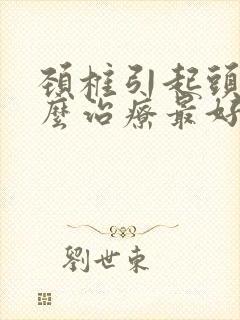 頚椎引起頭
麼治療最好
劉世東